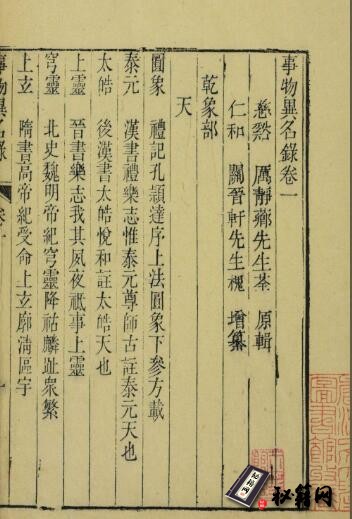 事物異名錄卷一
慈谿 厲靜薌先生荃 原輯
仁和 關晉軒先生槐 增纂
乾象部
天
圓象 禮記孔穎達序上法圓象下參方載
泰元 漢書禮樂志惟泰元尊師古註泰元天也
太皓 後漢書太皓悅和註太皓天也
上靈 晉書樂志我其夙夜祗事上靈
穹靈 北史魏明帝紀穹靈降祜麟趾衆繁
上玄 隋書高帝紀受命上玄廓清區宇
事物異名錄 卷一
秘籍网